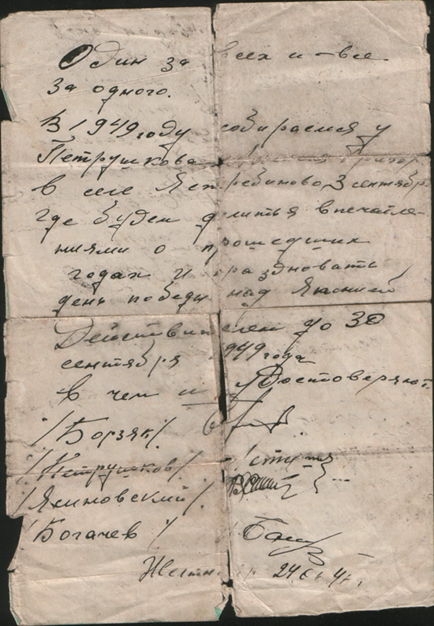 Один за всех и – все
за одного.
В 1949 году собираемся у
Петрушкова
в селе Ястребиново, 3 сентября
где будем делиться впечатле-
ниями о прошедших
годах и праздновать
день победы над Японией
Действителен до 30
сентября 1949 года
в чем и удостоверяют
/Борзяк/
/Петрушков/
/Ясиновский/
/Богачев/
24